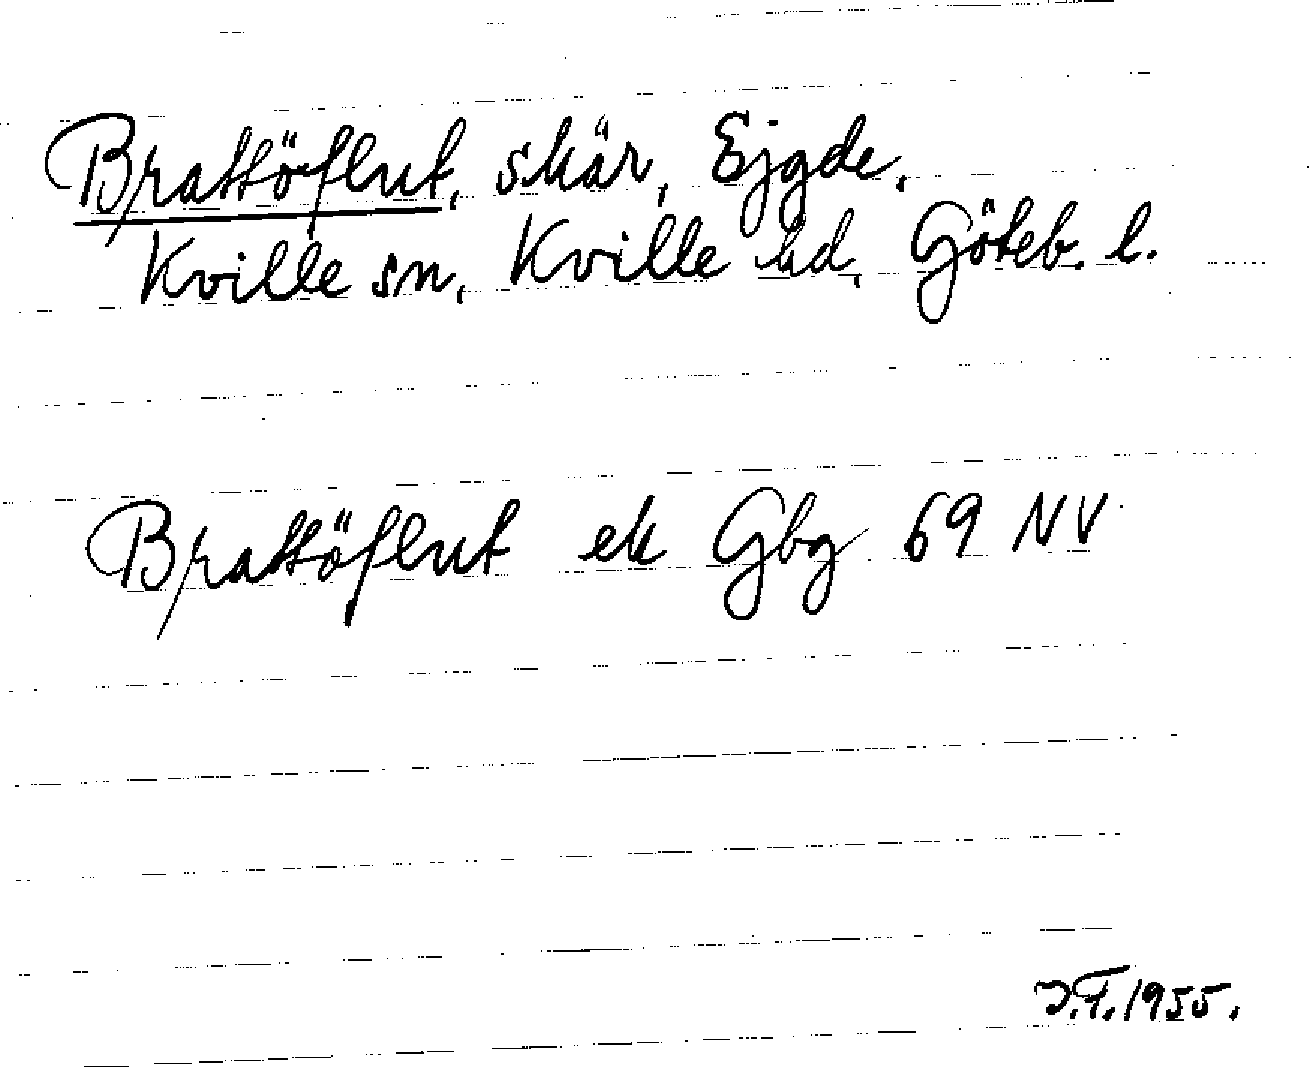 Brattöflut, skär, Ejgde,
Kville sn, Kville hd, Göteb. l.
Brattöflut ek Gbg 69 NV
J.F. 1955.